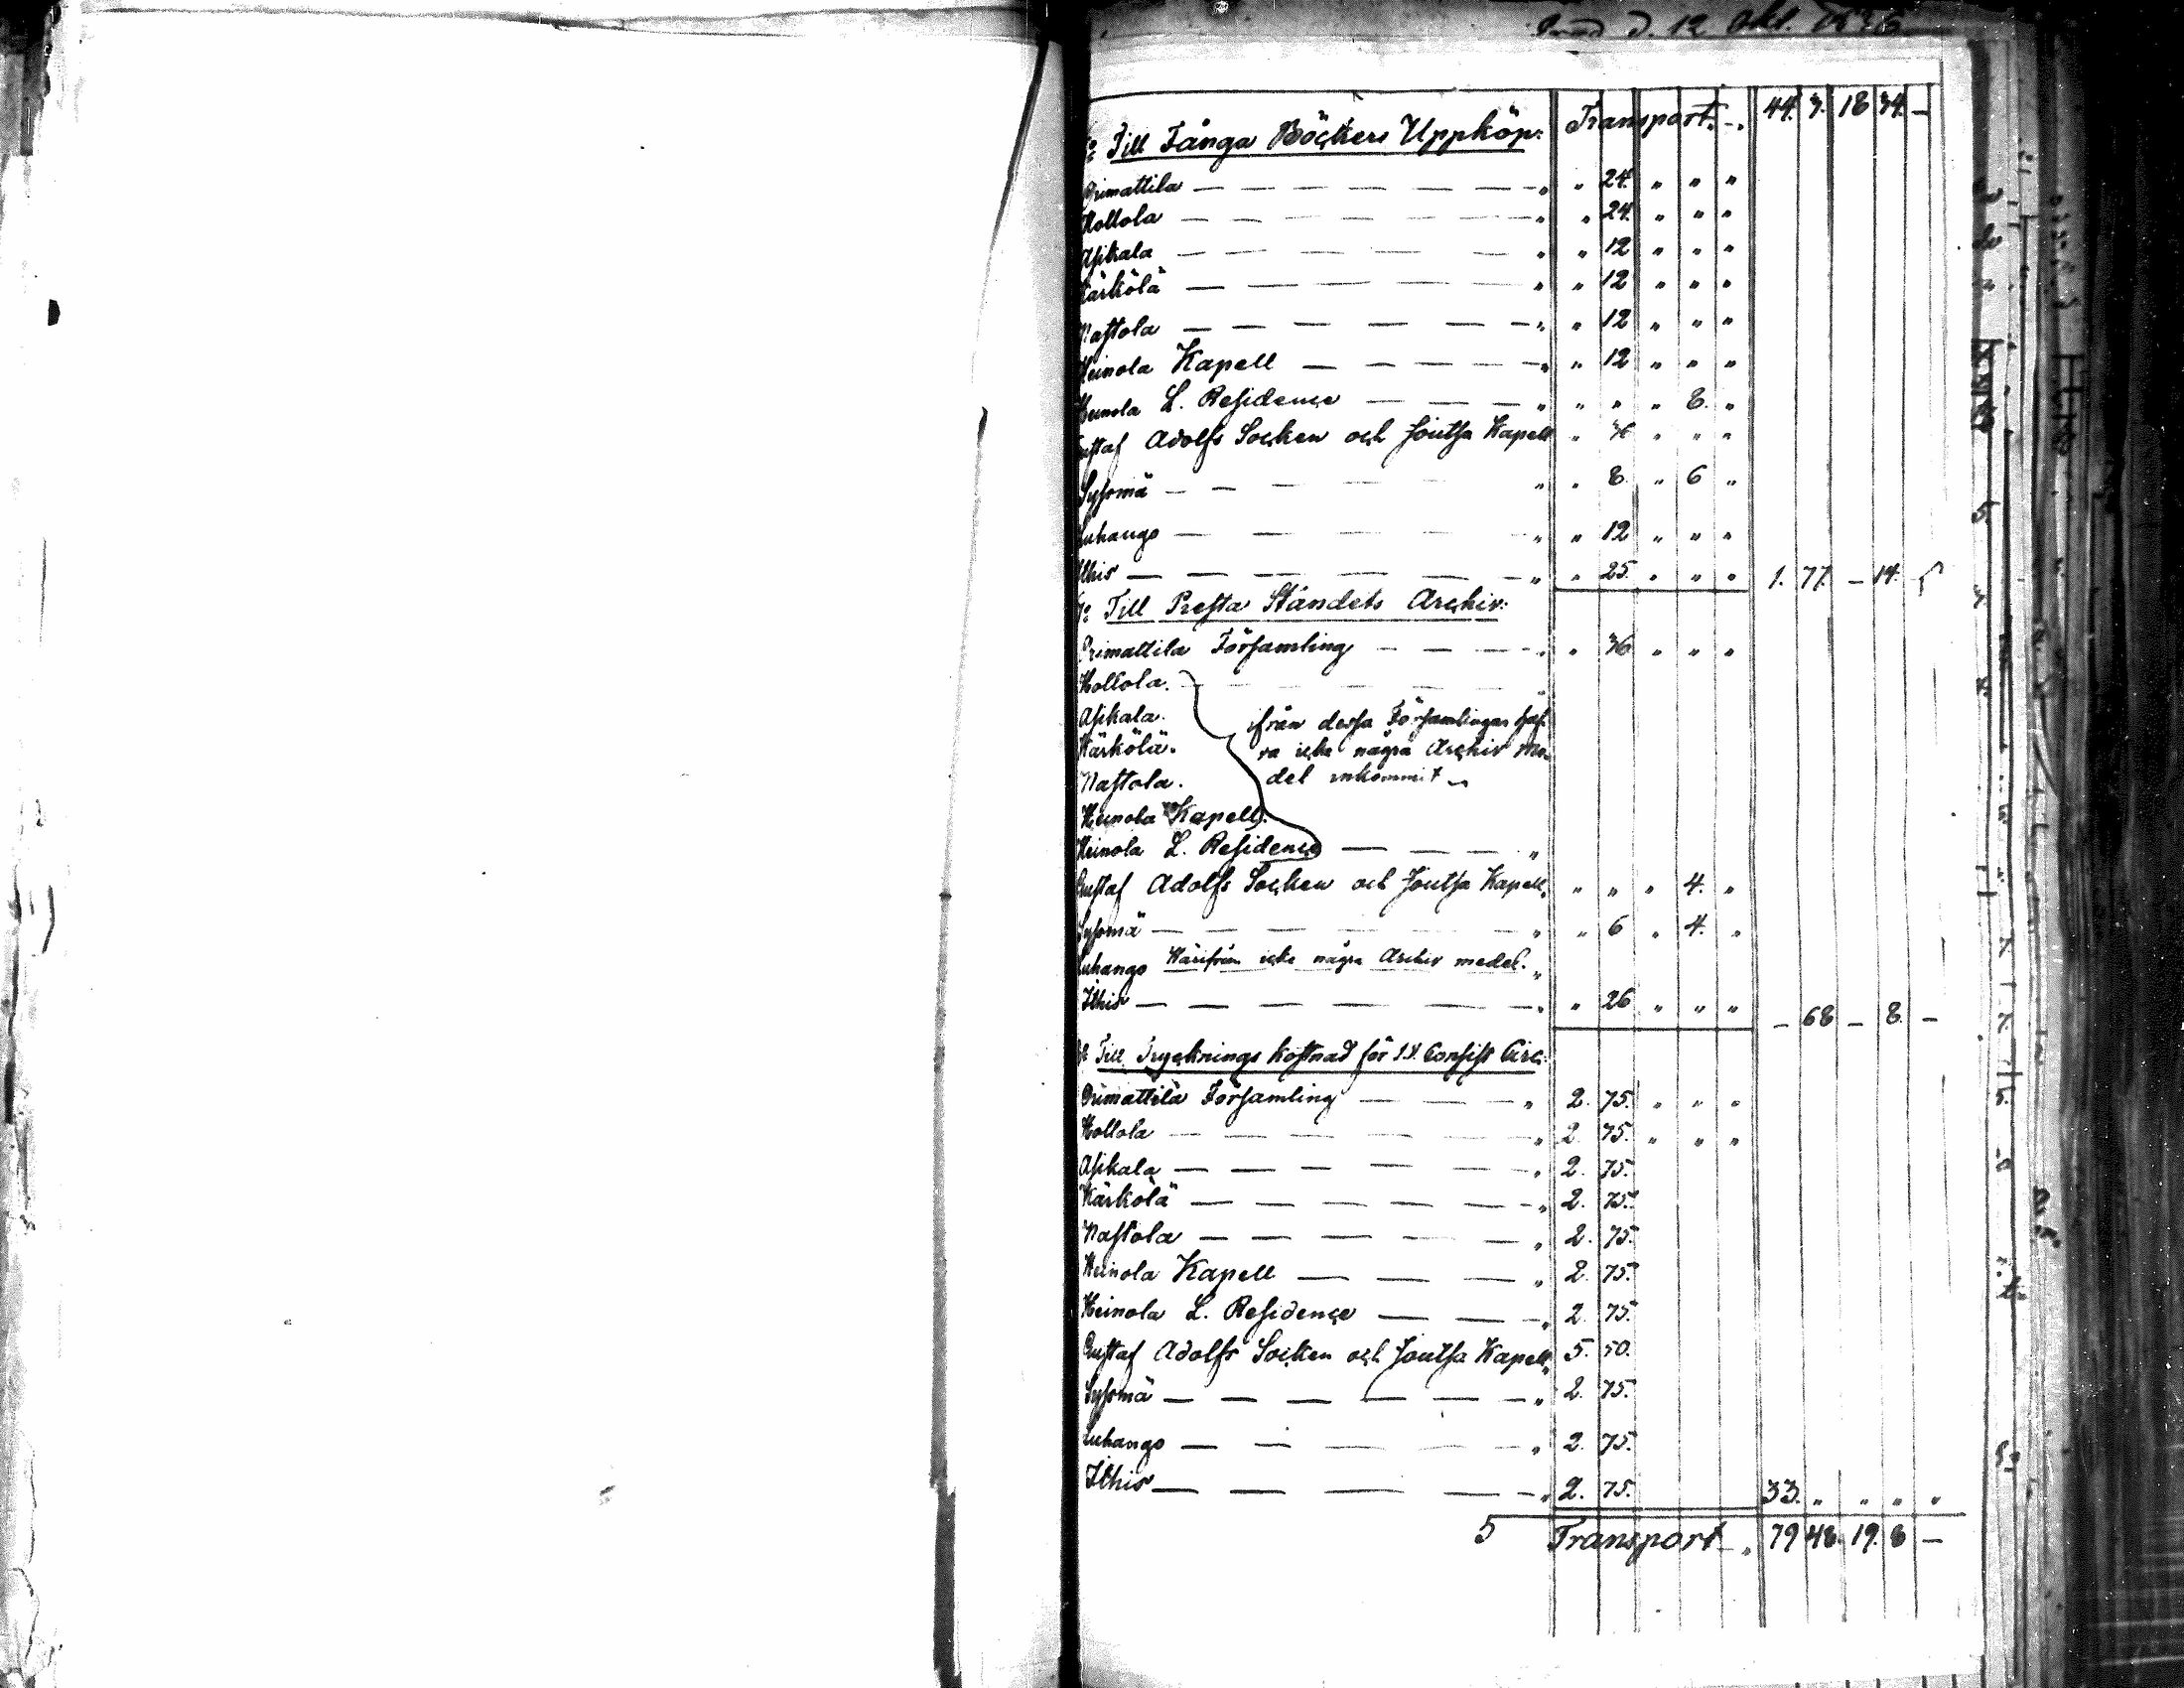 d. 12 Okt.
Transport. - . 44. 3. 18 34. -
Till Fånga Böckers Uppköp:
Orimattila — — — — — — — " " 24. " " "
Hollola — — — — — — — " " 24. " " "
Asikala — — — — — — " " 12 " " "
Kärkölä — — — — — — " " 12 " " "
Nastola — — — — — — " " 12 " " "
Heinola Kapell — — — — — " " 12 " " "
Heinola L. Residence — — — " " " " 8. "
Gustaf Adolfs Socken och Joutsa Kapell " 36 " " "
Sysmä — — — — — " " 8. " 6 "
Luhango — — — — — " " 12 " " "
Ithis — — — — — — " " 25. " " " 1. 77. — 14. -
Till Presta Ståndets Archiv:
Orimattila Församling — — — " " 36 " " "
Hollola. — — — — —
Asikala.
Kärkölä.
Nastola.
från dessa Församlingar haf-
va icke några Archiv me-
del inkommit —
Heinola Kapell.
Heinola L. Residence — — — "
Gustaf Adolfs Socken och Joutsa Kapell " " " " 4. "
Sysmä — — — — — — " " 6 " 4. "
Luhango Härifrån icke några Archiv medel. "
Ithis — — — — — — " " 26 " " " — 68 — 8. —
Till Tryčknings kostnad för Consist Circ:
Orimattila Församling — — — " 2. 75. " " "
Hollola — — — — — — " 2. 75. " " "
Asikala — — — — — — " 2. 75.
Kärkölä — — — — — — " 2. 75.
Nastola — — — — — — " 2. 75.
Heinola Kapell — — — — " 2. 75.
Heinola L. Residence — — — " 2. 75.
Gustaf Adolfs Socken och Joutsa Kapell " 5. 50.
Sysmä — — — — — — " 2. 75.
Luhango — — — — — " 2. 75.
Ithis — — — — — " 2. 75. 33. " " " "
5 Transport — " 79 48. 19. 8 —